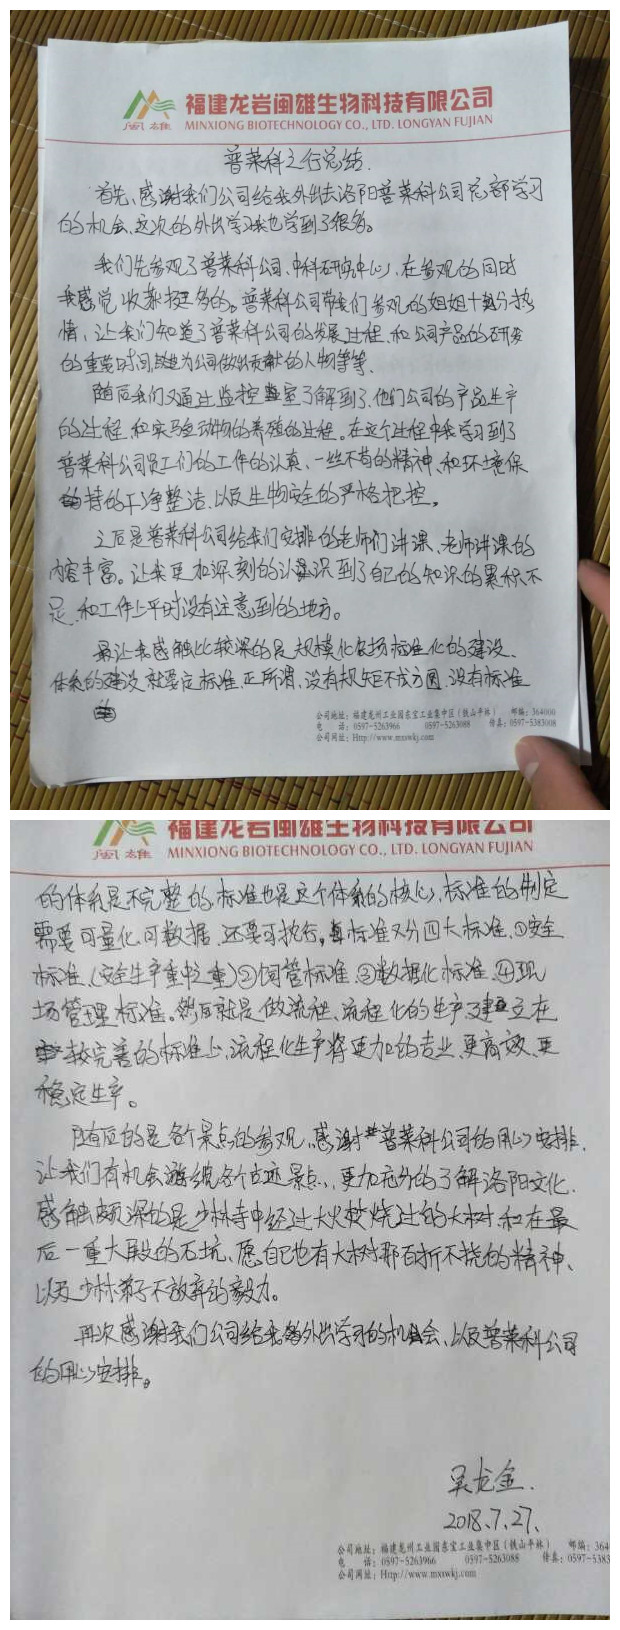 福建龙岩闽雄生物科技有限公司
闽雄 MINXIONG BIOTECHNOLOGY CO., LTD. LONGYAN FUJIAN
普莱科之行总结.
首先、感谢我们公司给我外出去洛阳普莱科公司总部学习
的机会、这次的外出学习我也学到了很多。
我们先参观了普莱科公司、中科研究中心、在参观的同时
我感觉收获挺多的。普莱科公司带我们参观的姐姐十分热
情、让我们知道了普莱科公司的发展过程、和公司产品的研发
的重要时间、为公司做出贡献的人物等等、
随后我们又通过监控室了解到了、他们公司的产品生产
的过程、和实验动物的养殖的过程。在这个过程中我学习到了
普莱科公司员工们的工作的认真、一丝不苟的精神、和环境保
持的干净整洁、以及生物安全的严格把控。
之后是普莱科公司给我们安排的老师们讲课、老师讲课的
内容丰富。让我更加深刻的认识到了自己的知识的累积不
足、和工作上平时没有注意到的地方。
最让我感触比较深的是、规模化农场标准化的建设、
体系的建设就要定标准、正所谓、没有规矩不成方圆、没有标准
公司地址：福建龙州工业园东宝工业集中区（铁山平林） 邮编：364000
电 话：0597-5263966 0597-5263088 传真：0597-5383008
公司网址：Http://www.mxswkj.com
福建龙岩闽雄生物科技有限公司
闽雄 MINXIONG BIOTECHNOLOGY CO., LTD. LONGYAN FUJIAN
的体系是不完整的、标准也是这个体系的核心、标准的制定
需要可量化、可数据、还要可执行。标准又分四大标准、①安全
标准、(安全生产重中之重)②饲管标准、③数据化标准、④现
场管理标准。然后就是做流程、流程化的生产建立在
较完善的标准上、流程化生产将更加的专业、更高效、更
稳定生产。
随后的是各个景点的参观、感谢普莱科公司的用心安排、
让我们有机会游览各个古迹景点、更加充分的了解洛阳文化、
感触颇深的是少林寺中经过大火焚烧过的大树、和在最
后一重大殿的石坑、愿自己也有大树那百折不挠的精神、
以及少林弟子不放弃的毅力。
再次感谢我们公司给我外出学习的机会、以及普莱科公司
的用心安排。
吴龙金.
2018.7.27.
公司地址：福建龙州工业园东宝工业集中区（铁山平林） 邮编：364
电 话：0597-5263966 0597-5263088 传真：0597-5383
公司网址：Http://www.mxswkj.com